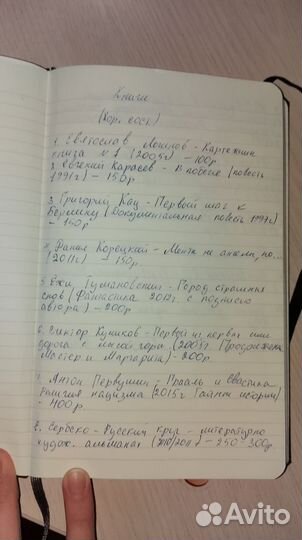 Книги
(хор. сост.)
1. Святослав Логинов - Картежник
книга №1 (2005г) - 100р
2. Евгений Карасев - В побеге (повесть
1991г) - 150р
3. Григорий Кац - Первый шаг к
Берлину (Документальная повесть 1997г)
- 150р
4. Данил Корецкий - Менты не ангелы, но...
(2011г) - 150р.
5. Ежи Тумановский - Город страшных
снов (Фантастика 2012г. с подписью
автора) - 200р
6. Виктор Куликов - Первый из первых или
дорога с Лысой горы (2005г. Продолжение
Мастер и Маргарита) - 200р.
7. Антон Первушин - Грааль и Свастика
религия нацизма 2015г (тайны истории)
- 400р.
8. Сербско-Русский круг - литературно
худож. альманах (2010/2011г) - 250-300р.
Avito